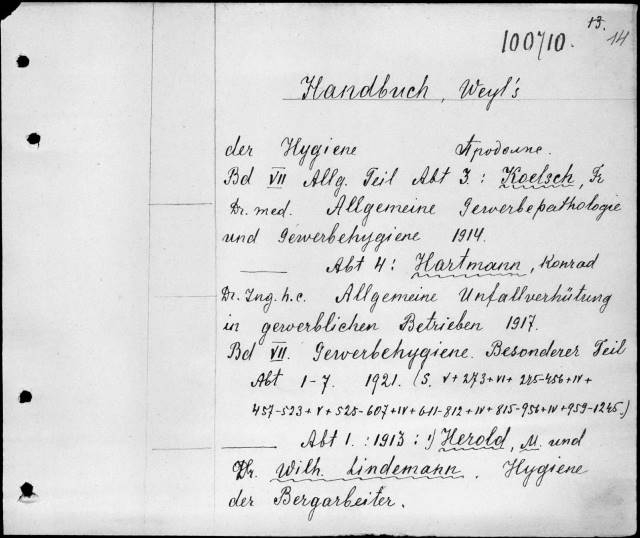 13.
14
100710.
Handbuch, Weyl's
der Hygiene Продолж.
Bd VII Allg. Teil Abt 3. : Koelsch, Fr
Dr. med. Allgemeine Gewerbepathologie
und Gewerbehygiene 1914.
—— Abt 4 : Hartmann, Konrad
Dr. Ing. h. c. Allgemeine Unfallverhütung
in gewerblichen Betrieben 1917.
Bd VII. Gewerbehygiene. Besonderer Teil
Abt 1-7. 1921. (S. V+273+VI+ 225-456+IV+
457-523+V+525-607+IV+611-812+IV+815-956+IV+959-1245.)
—— Abt 1. : 1913 : 1) Herold, M. und
Dr. Wilh. Lindemann. Hygiene
der Bergarbeiter.